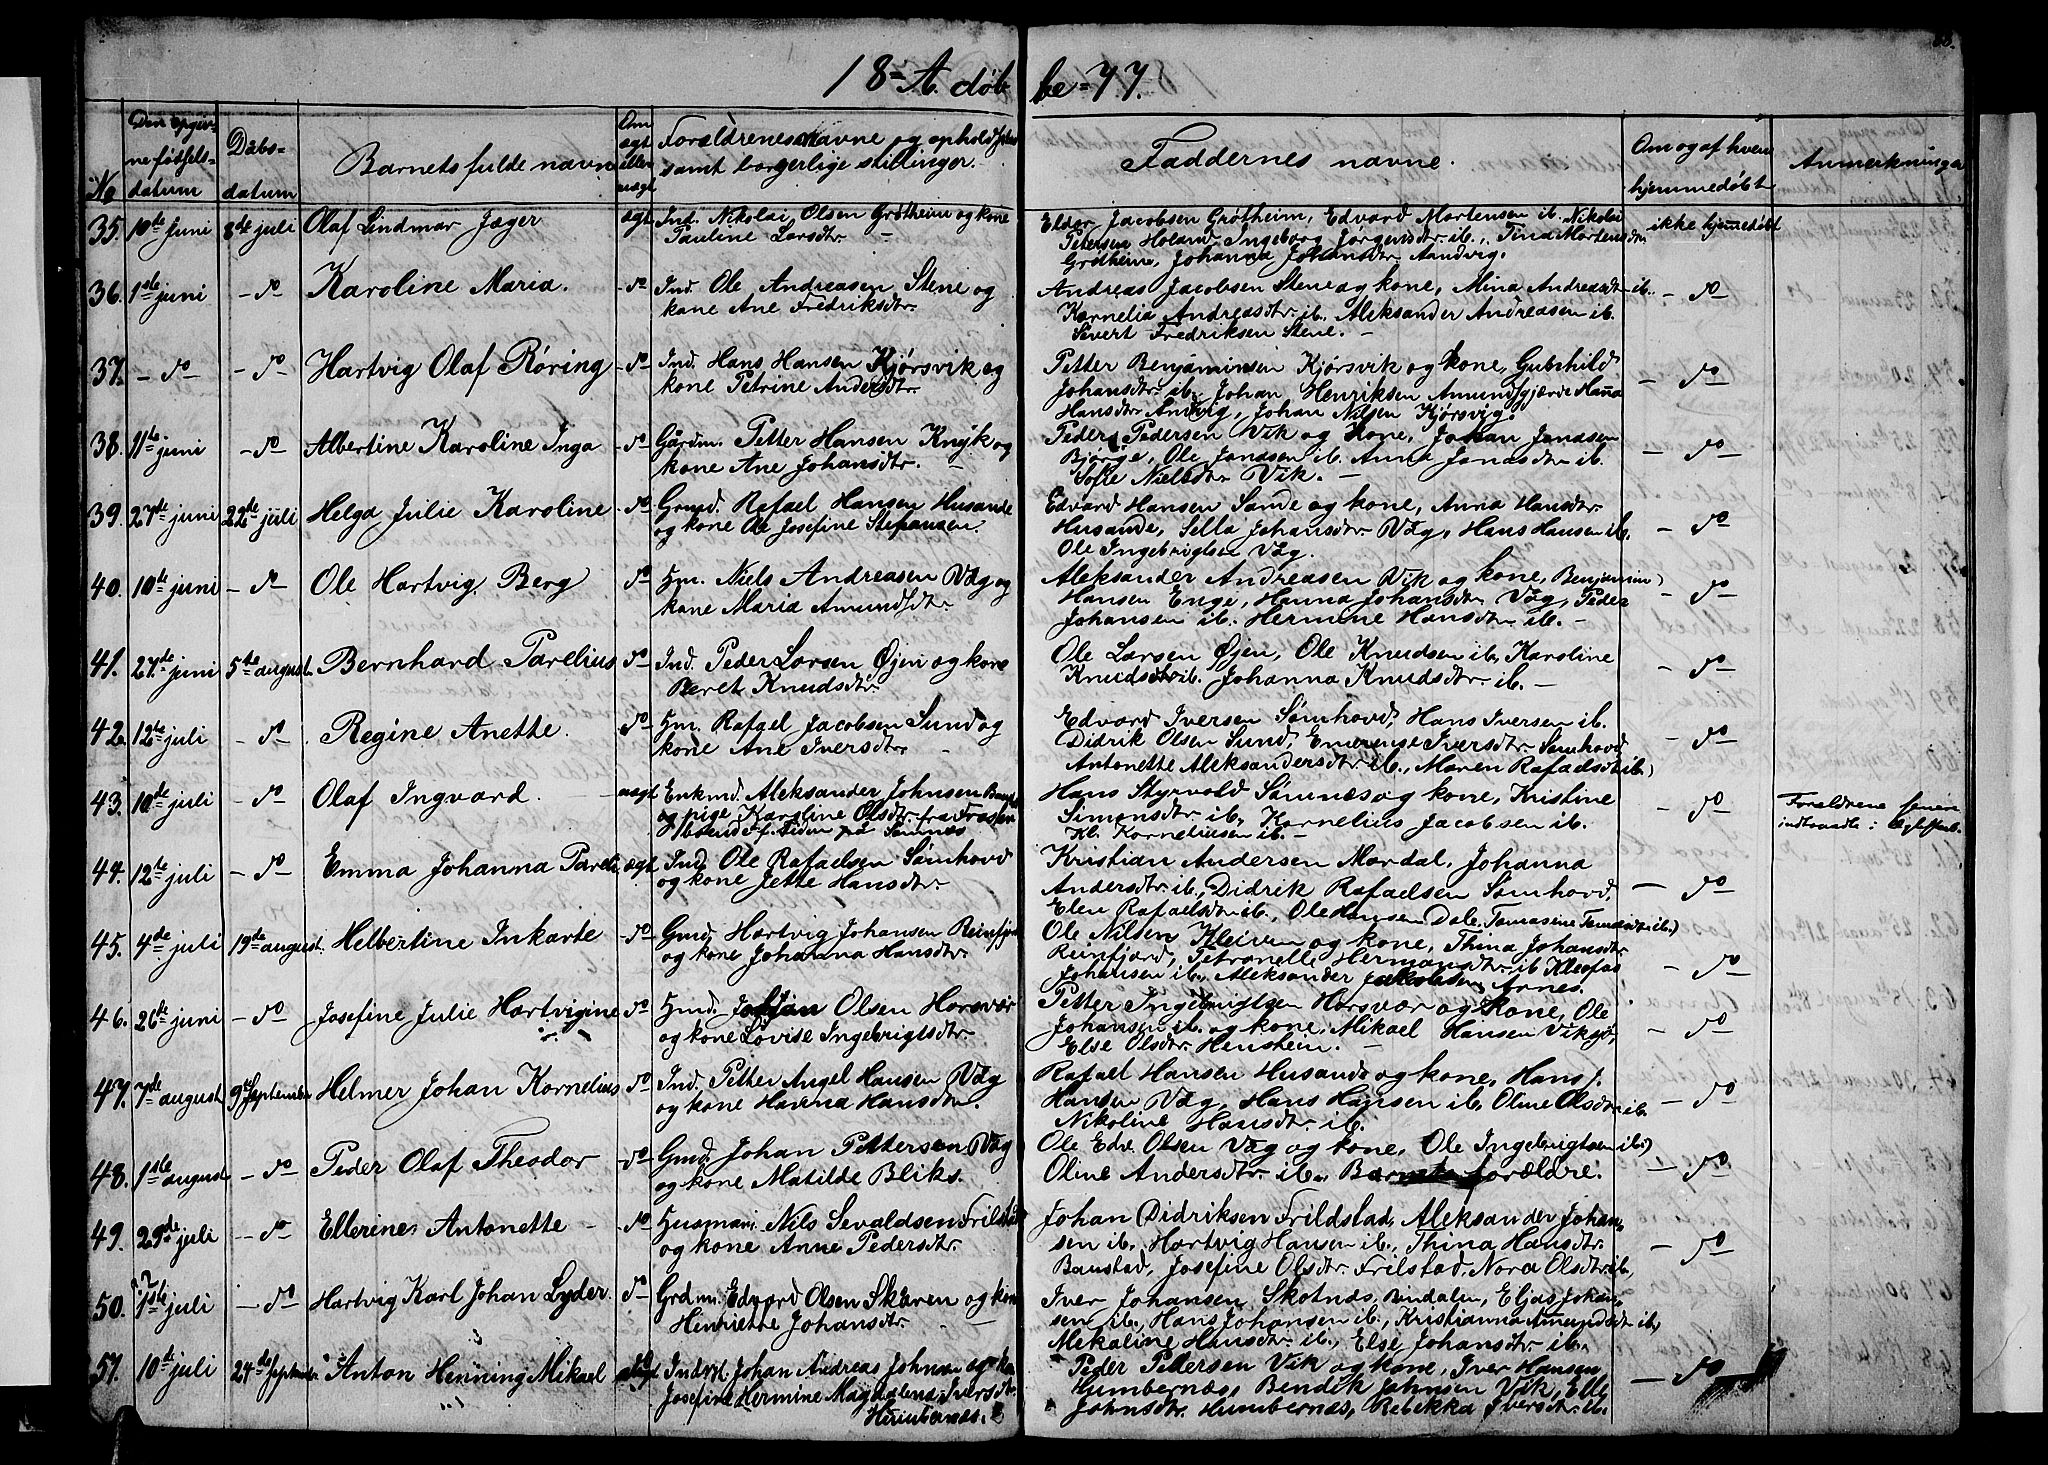 18 = A. døb
be = 77.
No
Den opgiv-
ne fødsels-
datum
Dåbs-
datum
Barnets fulde navn
Om
ægt
eller
uægt
Forældrenes navne og opholds
samt borgerlige stillinger.
Faddernes navne.
Om og af hvem
hjemmedøbt
Anmerkninger
35. 10de juni 8de juli Olaf Lindmar Jæger ægt Ind. Nikolai Olsen Grøtheim og kone
Pauline Larsdtr. –
Jacobsen Grøtheim, Edvard Mortensen ib. Nikolai
Petersen Holand, Ingeborg Jørgensdtr ib., Tina Mortensdtr
Grøtheim, Johanna Johansdtr Aandvig.
ikke hjemmedøbt
36. 1ste juni – do – Karoline Maria. – do – Ind. Ole Andreasen Stene og
kone Ane Fredriksdtr.
Andreas Jacobsen Stene og kone, Mina Andreasdtr ib.
Kornelia Andreasdtr ib. Aleksander Andreasen ib.
Sivert Fredriksen Stene. –
– do –
37. – do – – do – Hartvig Olaf Røring – do – Ind. Hans Hansen Kjørsvik og
kone Petrine Andersdtr.
Petter Benjaminsen Kjørsvik og kone, Gubshild
Johansdtr ib. Johan Henriksen Amundsgjærde Hanna
Hansdtr Andvig, Johan Nilsen Kjørsvig.
– do –
38. 11te juni – do – Albertine Karoline Inga – do – Gårdm. Petter Hansen Knyk og
kone Ane Johansdtr. –
Peder Pedersen Vik og Kone, Johan Jonassen
Bjørge, Ole Jonassen ib. Anna Jonasdtr ib.
Sofie Nielsdtr Vik. –
– do –
39. 27de juni 22de juli Helga Julie Karoline – do – Grmd. Rafael Hansen Husande
og kone Josefine Stefansen.
Edvard Hansen Sande og kone, Anna Hansdtr.
Husande, Silla Johansdtr. Våg, Hans Hansen ib.
Ole Ingebrigtsen Våg.
– do –
40. 10de juni – do – Ole Hartvig Berg – do – Hm. Niels Andreasen Våg og
kone Maria Amundsdtr.
Aleksander Andreasen Vik og kone, Benjamin
Hansen Enge, Hanna Johansdtr Våg, Peder
Johansen ib. Hermine Hansdtr ib. –
– do –
41. 27de juni 5te august Bernhard Parelius – do – Ind. Peder Larsen Øjen og kone
Beret Knudsdtr.
Ole Larsen Øjen, Ole Knudsen ib. Karoline
Knudsdtr ib. Johanna Knudsdtr. ib. –
– do –
42. 12te juli – do – Regine Anette. – do – Hm. Rafael Jacobsen Sund og
kone Ane Iversdtr. –
Edvard Iversen Sømhovd, Hans Iversen ib.
Didrik Olsen Sund, Emerense Iversdtr. Sømhovd
Antonette Aleksandersdtr. ib., Maren Rafaelsdtr ib.)
– do –
43. 10de juli – do – Olaf Ingvard. uægt Enkmd. Aleksander Johnsen
og pige Karoline Olsdtr. fra
Hans Styrvold Sømnes og kone, Kristine
Simonsdtr ib. Kornelius Jacobsen ib.
Kl. Korneliussen ib. –
– do –
Forældrene senere
indtraadte i Ægteskab.
44. 12te juli – do – Emma Johanna Pareli. ægt Ind. Ole Rafaelsen Sømhovd
og kone Jette Hansdtr.
Kristian Andersen Mardal, Johanna
Andersdtr. ib., Didrik Rafaelsen Sømhovd,
Elen Rafaelsdtr ib., Ole Hansen Dale,
– do –
45. 4de juli 19de august Helbertine Inkarte – do – Gmd. Hartvig Johansen Reinfjord
og kone Johanna Hansdtr.
Ole Nilsen Kleiven og kone, Thina Johansdtr.
Reinfjord, Petronelle Hermansdtr. ib. Kleofas
Johansen ib., Aleksander Arnes.
– do –
46. 26de juni – do – Josefine Julie Hartvigine – do – Hmd. Johan Olsen Horsvær
og kone Lovise Ingebrigtsdtr.
Petter Ingebrigtsen Horsvær og kone, Ole
Johansen ib. og kone, Mikael Hansen
Else Olsdtr. Henstein. –
– do –
47. 7de august 9de September Helmer Johan Kornelius – do – Ind. Petter Angel Hansen Våg
og kone Hanna Hansdtr.
Rafael Hansen Husande og kone, Hans J.
Hansen Våg, Hans Hansen ib. Oline Olsdtr ib
Nikoline Hansdtr. ib.
– do –
48. 1ste august – do – Peder Olaf Theodor – do – Gmd. Johan Pettersen Våg
og kone Matilde Bliks.
Ole Edv. Olsen Våg og kone, Ole Ingebrigtsen ib.)
Oline Andersdtr. ib., Barnets forældre.
– do –
49. 29de juli – do – Ellerine Antonette – – do – Husmand Nils Sevaldsen Frilstad
og kone Anne Pedersdtr.
Johan Didriksen Frildstad, Aleksander Johan-
sen ib. Hartvig Hansen ib., Thina Hansdtr.
Baustad, Josefine Olsdtr. Frilstad. Nora Olsdtr ib.
– do –
50. 1ste juli – do – Hartvig Karl Johan Lyder – do – Grdm. Edvard Olsen Skaren og kone
Henriette Johansdtr.
Iver Johansen Skotnes, Bindalen, Eljas Johan-
sen ib., Hans Johansen ib., Kristianna Amundsdtr ib.
Mekaline Hansdtr. ib., Else Johansdtr ib.
51. 10de juli 24de September Anton Henning Mikael Johan Andreas Johnsen og kone
Josefine Hermine Magdalena Iversdtr.
Peder Pedersen Vik og kone, Iver Hansen
Humbernæs, Bendik Johnsen Vik, Elle
Johnsdtr. Humbernæs, Rebekka Iversdtr. ib.
– do –